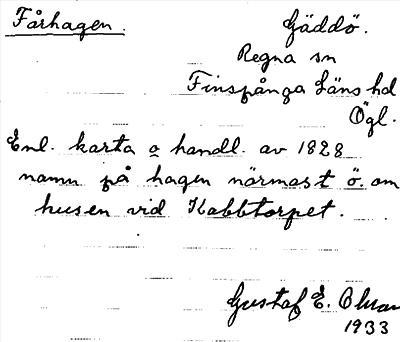 Fårhagen.
Gäddö.
Regna sn
Finspånga Läns hd
Ögl.
Enl. karta o handl. av 1828
namn på hagen närmast ö. om
husen vid Kabbtorpet.
Gustaf E.
1933